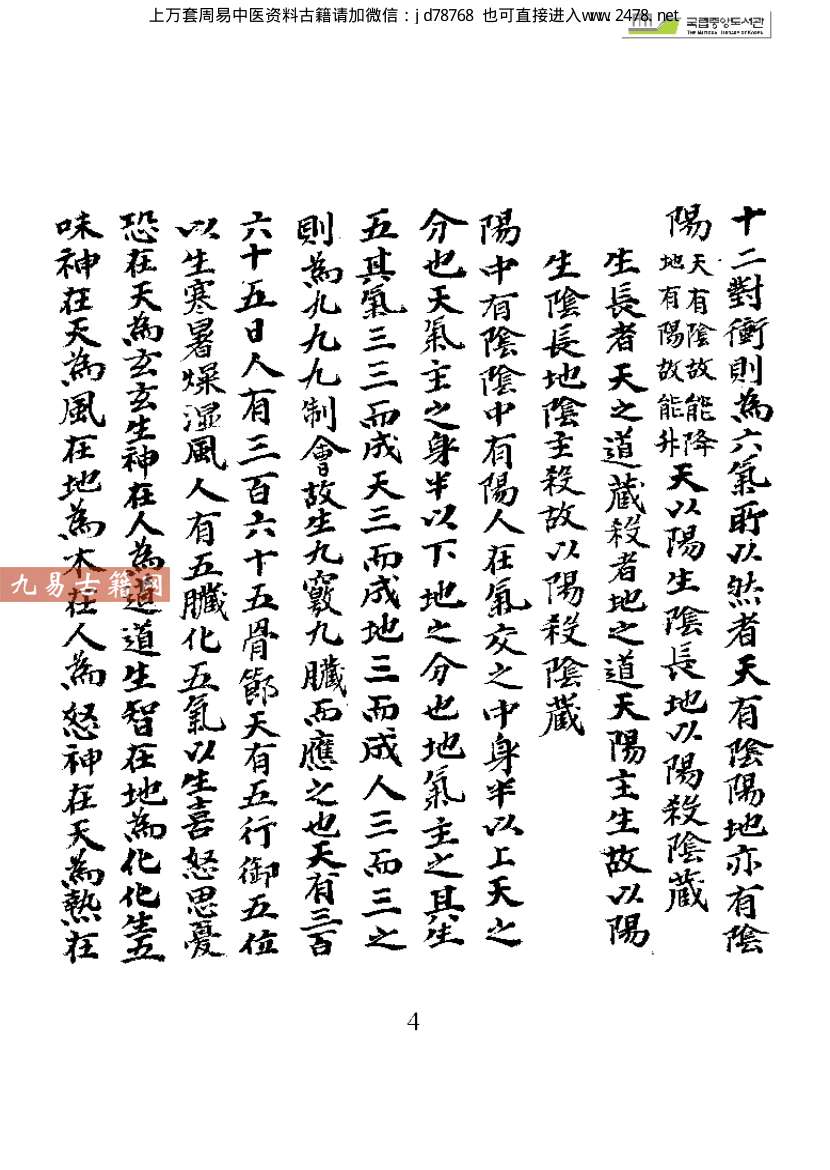 上万套周易中医资料古籍请加微信：jd78768 也可直接进入www.2478.net
국립중앙도서관
THE NATIONAL LIBRARY OF KOREA
十二對衝則為六氣所以然者天有陰陽地亦有陰
陽天有陰故能降地有陽故能升天以陽生陰長地以陽殺陰藏
生長者天之道藏殺者地之道天陽主生故以陽
生陰長地陰主殺故以陽殺陰藏
陽中有陰陰中有陽人在氣交之中身半以上天之
分也天氣主之身半以下地之分也地氣主之其生
五其氣三三而成天三而成地三而成人三而三之
則為九九九制會故生九竅九臓而應之也天有三百
六十五日人有三百六十五骨節天有五行御五位
以生寒暑燥湿風人有五臓化五氣以生喜怒思憂
恐在天為玄玄生神在人為道道生智在地為化化生五
味神在天為風在地為木在人為怒神在天為熱在
九易古籍网
4